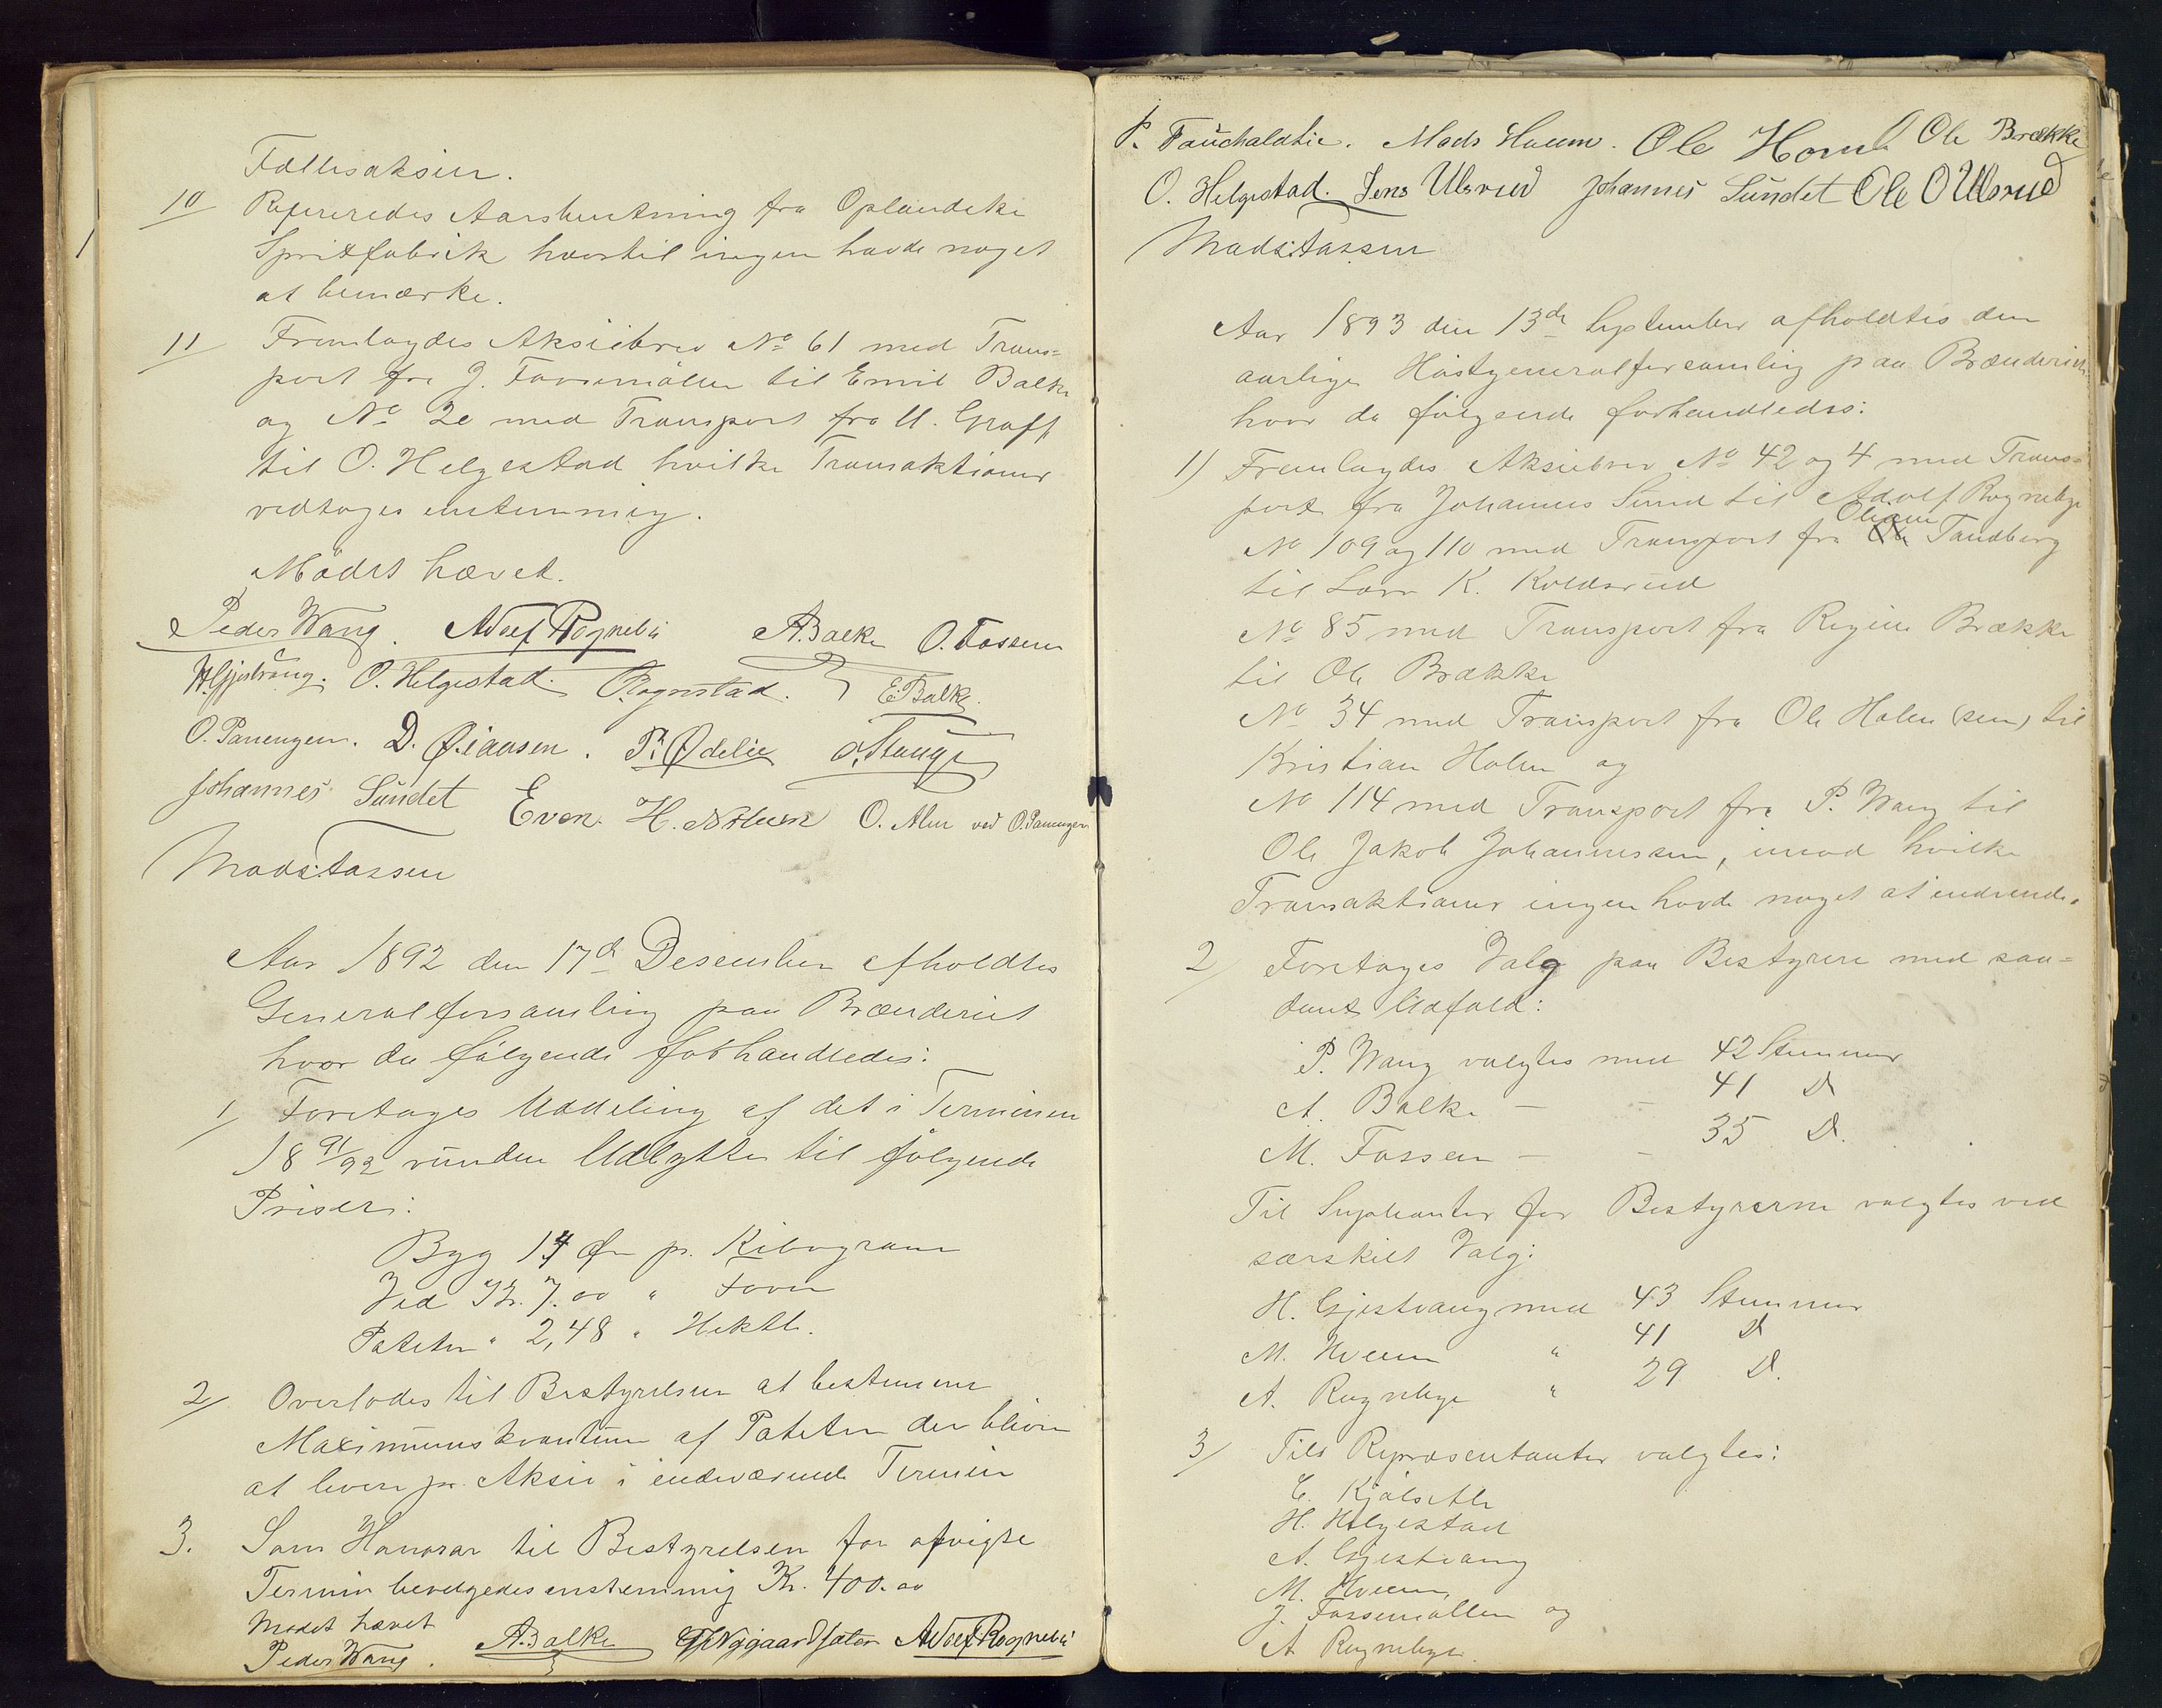 Fællesaksier.
10/ Refereredes Aarsberetning fra Oplandske
Spritfabrik hvortil ingen havde noget
at bemærke.
11/ Fremlagdes Aksiebrev No 61 med Trans=
port fra J. Fossemöllen til Emil Balke
og No 20 med Transport fra U. Graff
til O. Helgestad hvilke Transaktioner
vedtoges enstemmig.
Mödet hævet.
Peder Wang. Adolf Rognebÿ A. Balke O. Fossen
H. Gjestvang. O. Helgestad. Rognstad. E. Balke.
O. Panengen. D. Østansen. P. Ødelie O. Stange
Johannes Sundet Even H. O. Alm ved O. Panengen
Mads Fossen
Aar 1892 den 17d Desember afholdtes
Generalforsamling paa Brænderiet
hvor da fölgende forhandledes:
1/ Foretoges Uddeling af det i Terminen
18 91/92 vundne Udbytte til fölgende
Priser:
Byg 14 Øre pr. Kilogram
Ved Kr. 7.00 " Favn
Poteter " 2,48 " Hektl.
2/ Overlodes til Bestyrelsen at bestemme
Maximumskvantum af Poteter der bliver
at levere pr. Aksie i indeværende Termin
3. Som Honorar til Bestyrelsen for afvigte
Termin bevilgedes enstemmig Kr. 400.00
Mødet hævet
Peder Wang. A. Balke Nygaardsæter Adolf Rognebÿ
P. Fauchaldlie. Mads Hveem. Ole Horn Ole Brække
O. Helgestad. Jens Ulsrud Johannes Sundet Ole O Ulsrud
Mads Fossen
Aar 1893 den 13de September afholdtes den
aarlige Höstgeneralforsamling paa Brænderiet
hvor da fölgende forhandledes:
1) Fremlagdes Aksiebrev No 42 og 4 med Trans=
port fra Johannes Sund til Adolf Rognebye
No 109 og 110 med Transport fra Oliane Tandberg
til Lars K. Koldsrud
No 85 med Transport fra Regine Brække
til Ole Brække
No 34 med Transport fra Ole Holen (sen) til
Kristian Holen og
No 114 med Transport fra P. Wang til
Ole Jakob Johannessen, imod hvilke
Transaktioner ingen havde noget at indvende.
2/ Foretoges Valg paa Bestyrere med saa=
dant Udfald:
P. Wang valgtes med 42 Stemmer
A. Balke — — 41 D
M. Fossen — — 35 D.
Til Suplianter for Bestyrerne valgtes ved
særskilt Valg:
H. Gjestvang med 43 Stemmer
M. Hveem " 41 D
A. Rognebye " 29 D.
3/ Till Repræsentanter valgtes:
C. Kjölseth
H. Helgestad
A. Gjestvang
M. Hveem,
J. Fossemöllen og
A Rognebye.